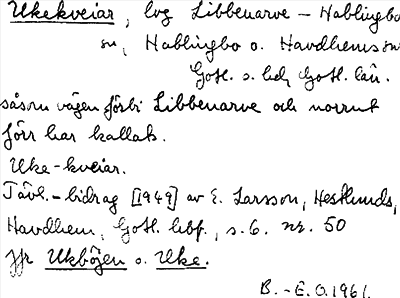 Ukekveiar, lvg Libbenarve - Hablingbo
sn, Hablingbo o. Havdhems snr
Gotl. s. hd, Gotl. län.
såsom vägen förbi Libbenarve och norrut
förr har kallats.
Uke-kveiar.
Tävl.-bidrag [1949] av E. Larsson, Hestlunds,
Havdhem, Gotl. hbf., s. 6. nr. 50
Jfr Ukböjen o. Uke.
B.-E. O. 1961.